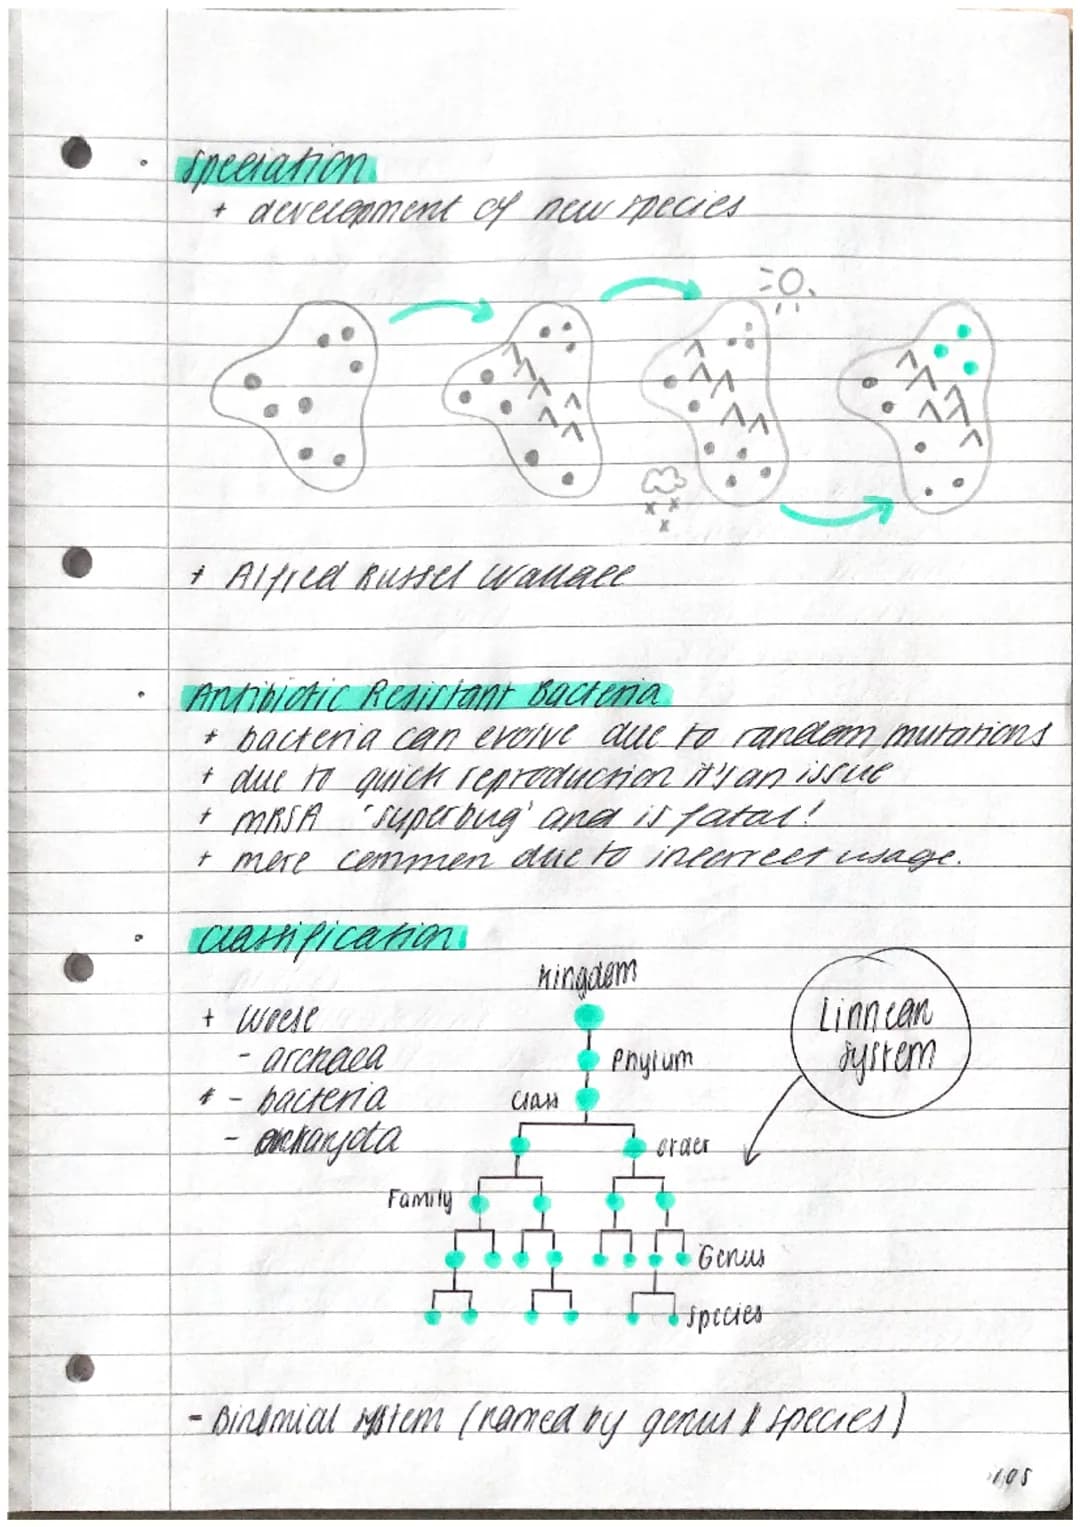 speciation
+ development of new species
+ Alfred Russel Wallace
Antibiotic Resistant Bacteria
+ bacteria can evolve due to random mutations
+ due to quick reproduction it's an issue
+ MRSA 'superbug' and is fatal!
+ more common due to incorrect usage.
classification
Kingdom
+ Woese
Linnean
system
- archaea
Phylum
- bacteria
class
- eukaryota
order
Family
Genus
species
- Binomial system (named by genus & species)